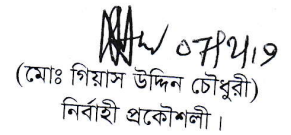 (মোঃ গিয়াস উদ্দিন চৌধুরী)
নির্বাহী প্রকৌশলী।